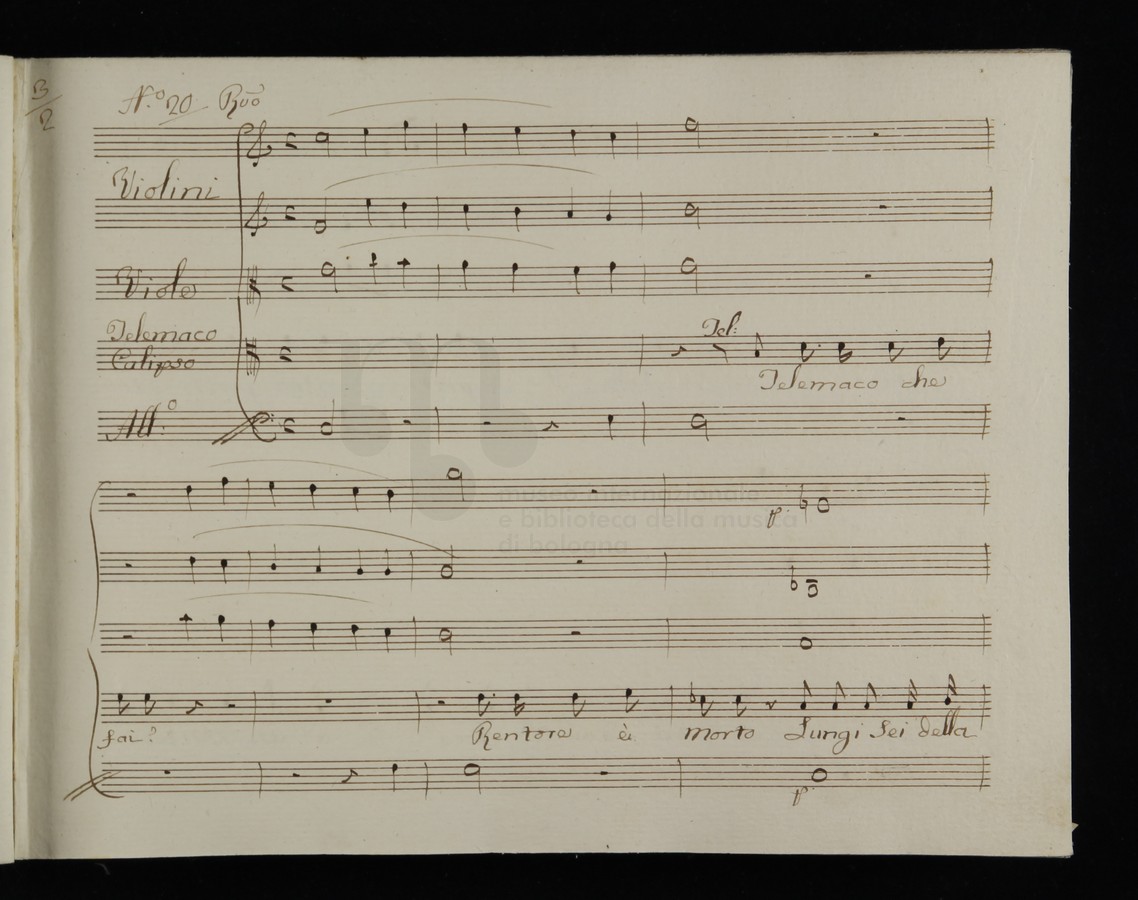 3/2
N.º 20 Rvõ
Violini
Viole
Telemaco
Calipso
Tel:
Telemaco che
All.º
museo internazionale
e biblioteca della musica
di bologna
p.
fai?
Rentore è morto Lungi Sei della
p.